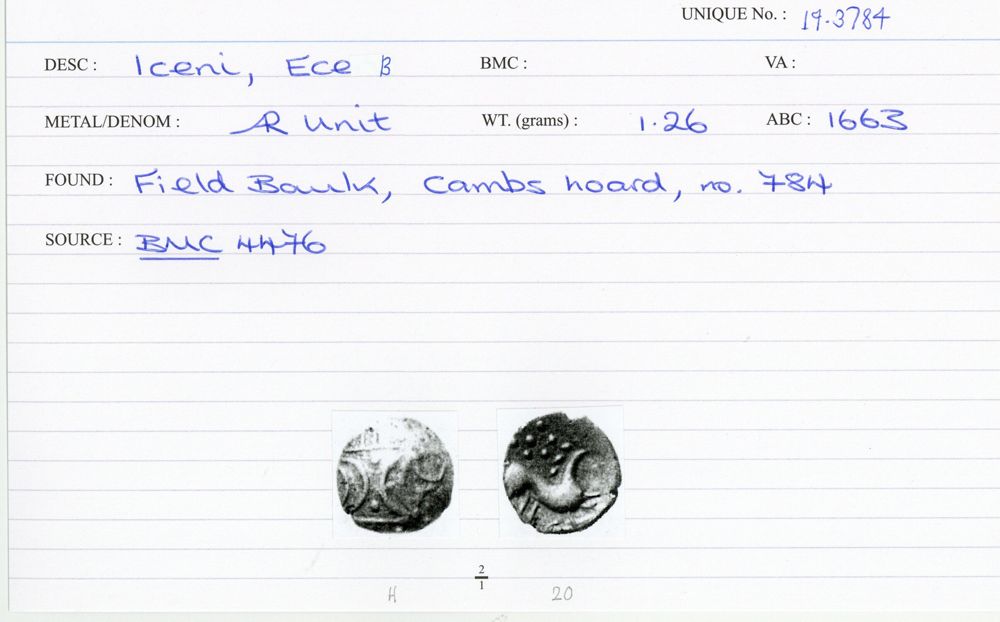 UNIQUE No. : 19.3784
DESC : Iceni, Ece B BMC : VA :
METAL/DENOM : AR Unit WT. (grams) : 1.26 ABC : 1663
FOUND : Field Baulk, Cambs hoard, no. 784
SOURCE : BMC 4476
2
1
H 20